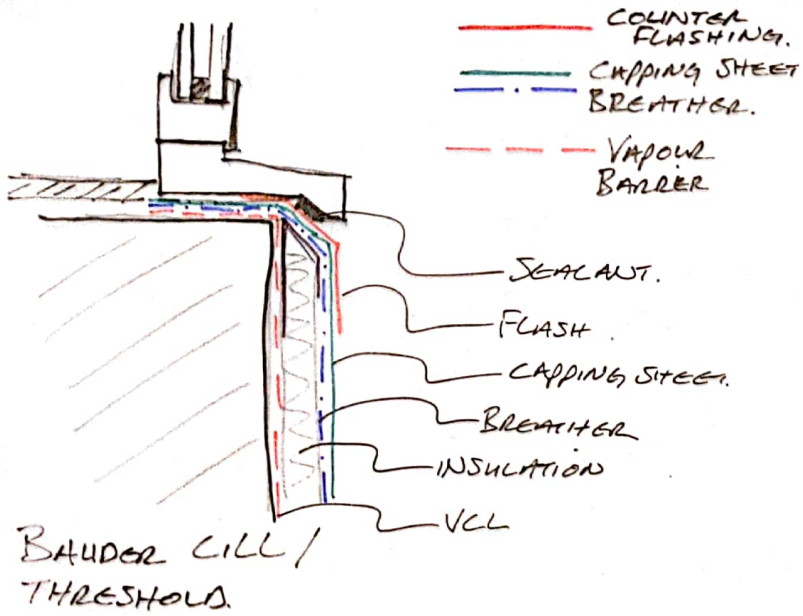 COUNTER
FLASHING.
CAPPING SHEET
BREATHER.
VAPOUR
BARRIER
SEALANT.
FLASH
CAPPING SHEET.
BREATHER
INSULATION
VCL
BAUDER CILL /
THRESHOLD.